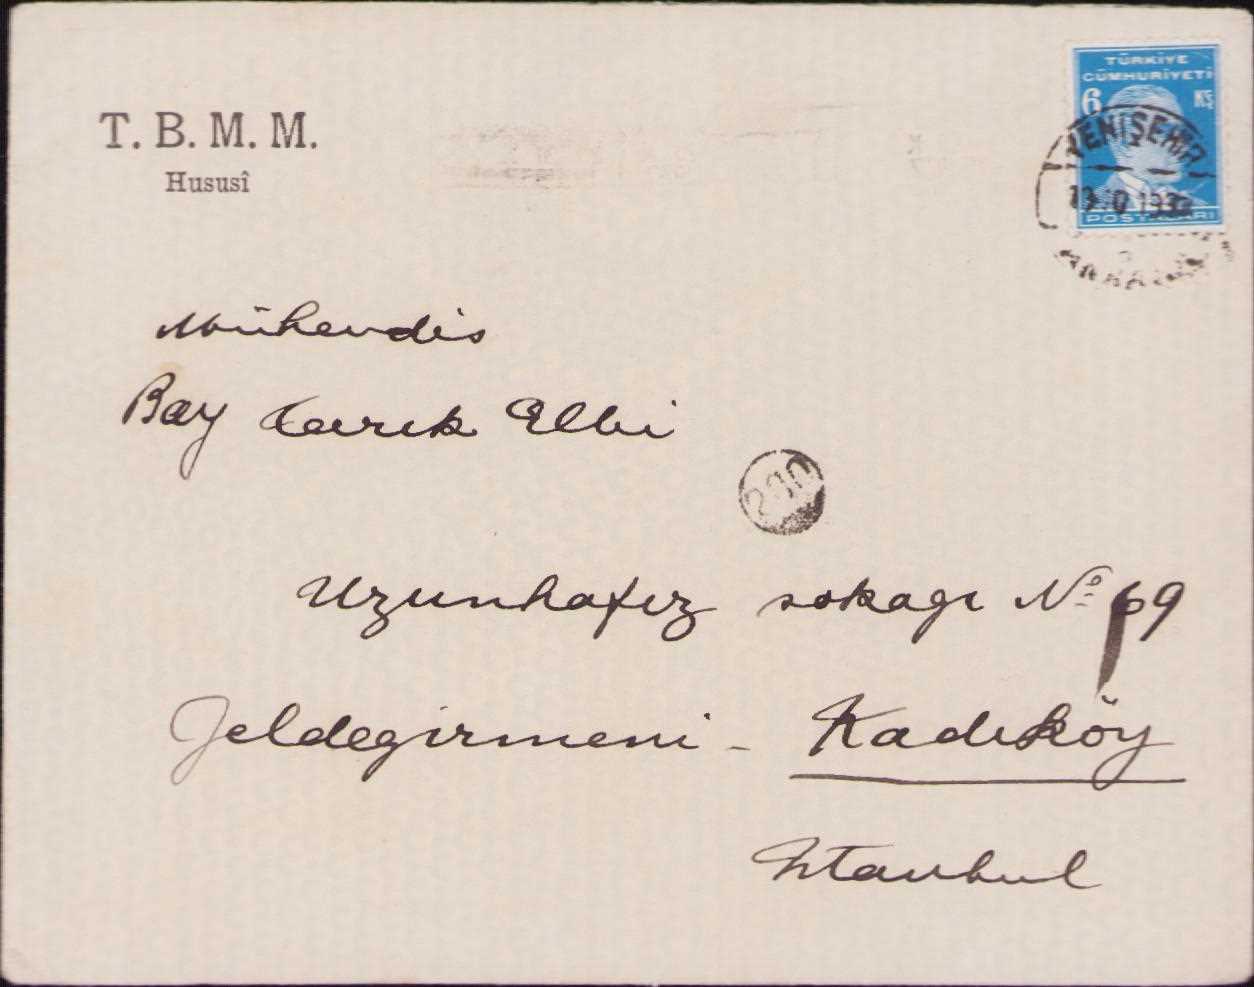 T. B. M. M.
Hususî
TÜRKİYE
CÜMHURİYETİ
6 Kş
YENİŞEHİR
POSTALARI
Mühendis
Bay Tarık Elbi
200
Uzunhafız sokagı No 69
Yeldegirmeni - Kadıköy
İstanbul